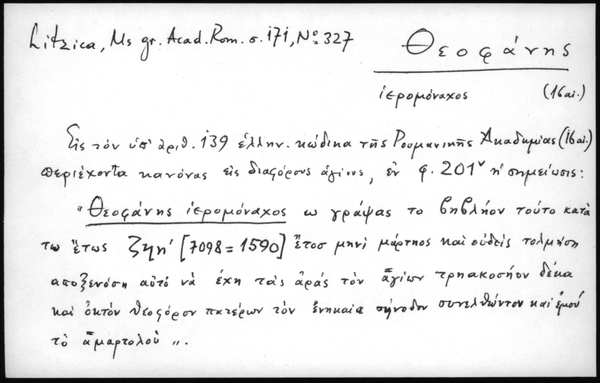 Litzica, Ms gr. Acad. Rom. σ. 171, Nº 327
Θεοφάνης
ἱερομόναχος (16 αἰ.)
Εἰς τὸν ὑπ' ἀριθ. 139 ἑλλην. κώδικα τῆς Ρουμανικῆς Ἀκαδημίας (16 αἰ.)
περιέχοντα κανόνας εἰς διαφόρους ἁγίους, ἐν φ. 201ᵛ ἡ σημείωσις:
"Θεοφάνης ἱερομόναχος ω γράψας το βηβλήον τούτο κατὰ
τω ἔτως ζϟη' [7098 = 1590] ἔτοσ μηνὶ μάρτηος καὶ οὐδεὶς τολμήση
αποξενόση αὐτὸ νὰ ἔχη τὰς ἀρὰς τὸν ἁγίων τρηακοσήον δέκα
καὶ ὀκτὸν θεοφόρον πατέρων τὸν ἐνηκαία σήνοδον συνελθώντον καὶ ἐμοῦ
τὸ ἁμαρτολοῦ".